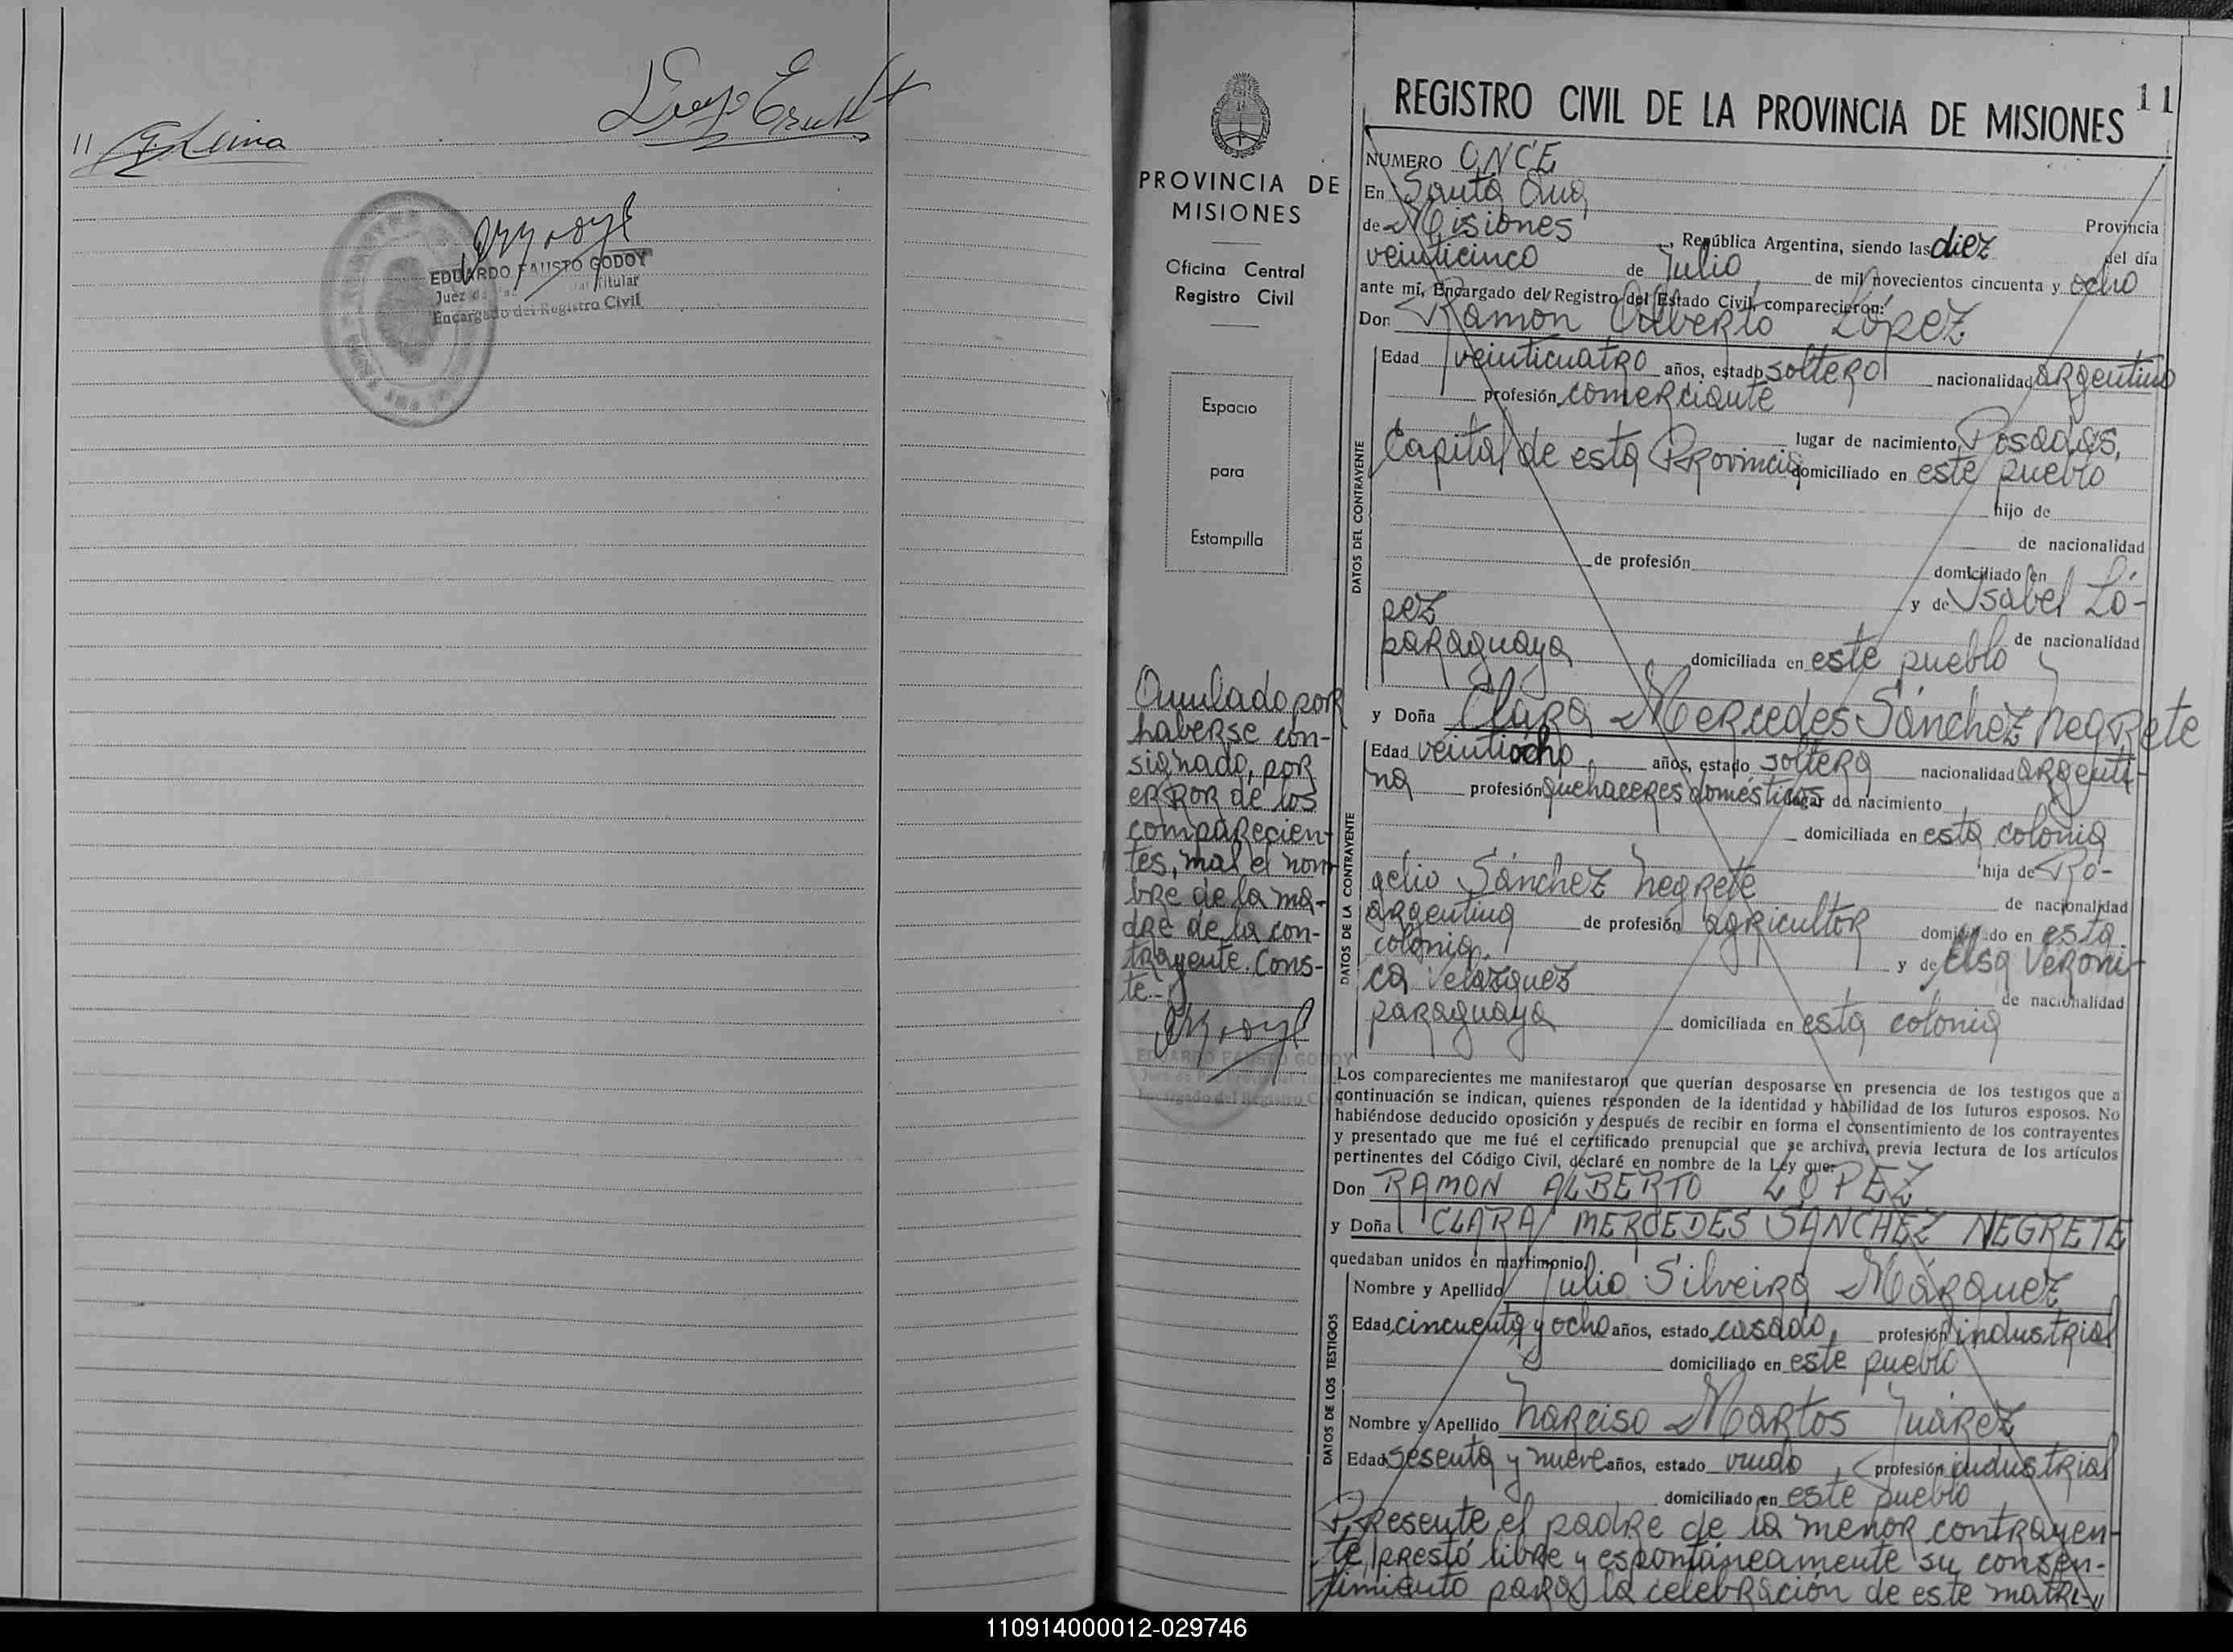 11
PROVINCIA DE
MISIONES
Oficina Central
Registro Civil
Espacio
para
Estampilla
EDUARDO FAUSTO GODOY
Juez de Paz Titular
Encargado del Registro Civil
Anulado por
haberse con-
signado, por
error de los
comparecien-
tes, mal el nom-
bre de la ma-
dre de la con-
trayente. Cons-
te.-
EDUARDO FAUSTO GODOY
Encargado del Registro Civil
REGISTRO CIVIL DE LA PROVINCIA DE MISIONES 11
NUMERO ONCE
En Santa Ana, Provincia
de Misiones, República Argentina, siendo las diez del día
veinticinco de Julio, de mil novecientos cincuenta y ocho
ante mí, Encargado del Registro del Estado Civil, comparecieron:
Don Ramon Alberto López
DATOS DEL CONTRAYENTE
Edad veinticuatro años, estado soltero nacionalidad argentino
profesión comerciante
lugar de nacimiento Posadas,
Capital de esta Provincia domiciliado en este pueblo
hijo de
de nacionalidad
de profesión domiciliado en
y de Isabel Ló-
pez de nacionalidad
paraguaya domiciliada en este pueblo
y Doña Clara Mercedes Sánchez Negrete
DATOS DE LA CONTRAYENTE
Edad veintiocho, años, estado soltera nacionalidad argenti-
na profesión quehaceres domésticos lugar de nacimiento
domiciliada en esta colonia
hija de Ro-
gelio Sánchez Negrete de nacionalidad
argentina de profesión agricultor domiciliado en esta
colonia, y de Elsa Veróni-
ca Velazquez de nacionalidad
paraguaya domiciliada en esta colonia
Los comparecientes me manifestaron que querían desposarse en presencia de los testigos que a
continuación se indican, quienes responden de la identidad y habilidad de los futuros esposos. No
habiéndose deducido oposición y después de recibir en forma el consentimiento de los contrayentes
y presentado que me fué el certificado prenupcial que se archiva, previa lectura de los artículos
pertinentes del Código Civil, declaré en nombre de la Ley que:
Don RAMON ALBERTO LOPEZ
y Doña CLARA MERCEDES SANCHEZ NEGRETE
quedaban unidos en matrimonio.
DATOS DE LOS TESTIGOS
Nombre y Apellido Julio Silveira Márquez
Edad cincuenta y ocho años, estado casado, profesión industrial
domiciliado en este pueblo
Nombre y Apellido Narciso Martos Juárez
Edad sesenta y nueve años, estado viudo, profesión industrial
domiciliado en este pueblo
Presente el padre de la menor contrayen-
te, prestó libre y espontáneamente su consen-
timiento para la celebración de este matri-//
110914000012-029746